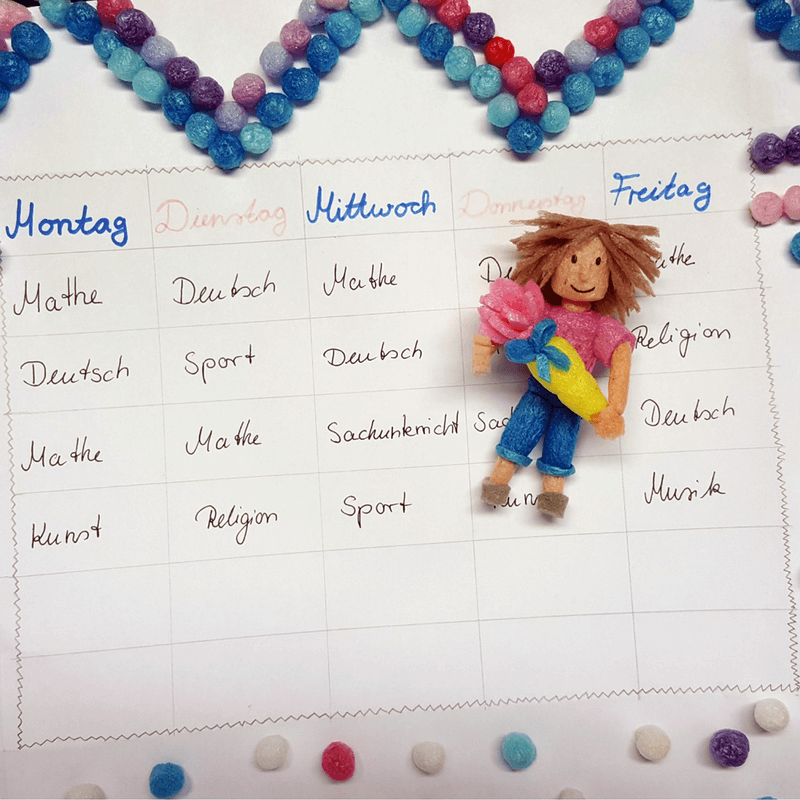 Montag Dienstag Mittwoch Donnerstag Freitag
Mathe Deutsch Mathe
Deutsch Sport Deutsch Religion
Mathe Mathe Sachunterricht Deutsch
Kunst Religion Sport Musik